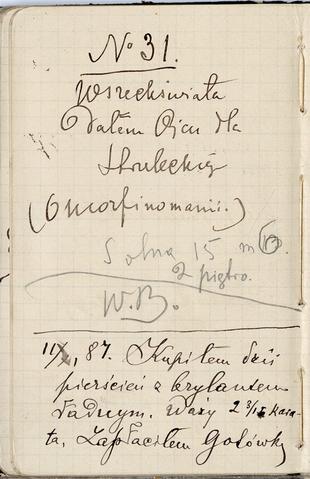 No 31.
Wszechświata
Dałem Ojcu dla
Hrubeckiej
(O morfinomanii.)
Solna 15 m 13.
2 piętro.
W.B.
11/X, 87. Kupiłem dziś
pierścień z brylantem
ładnym. Waży 2 3/15 Kara-
ta, Zapłaciłem Gotówką